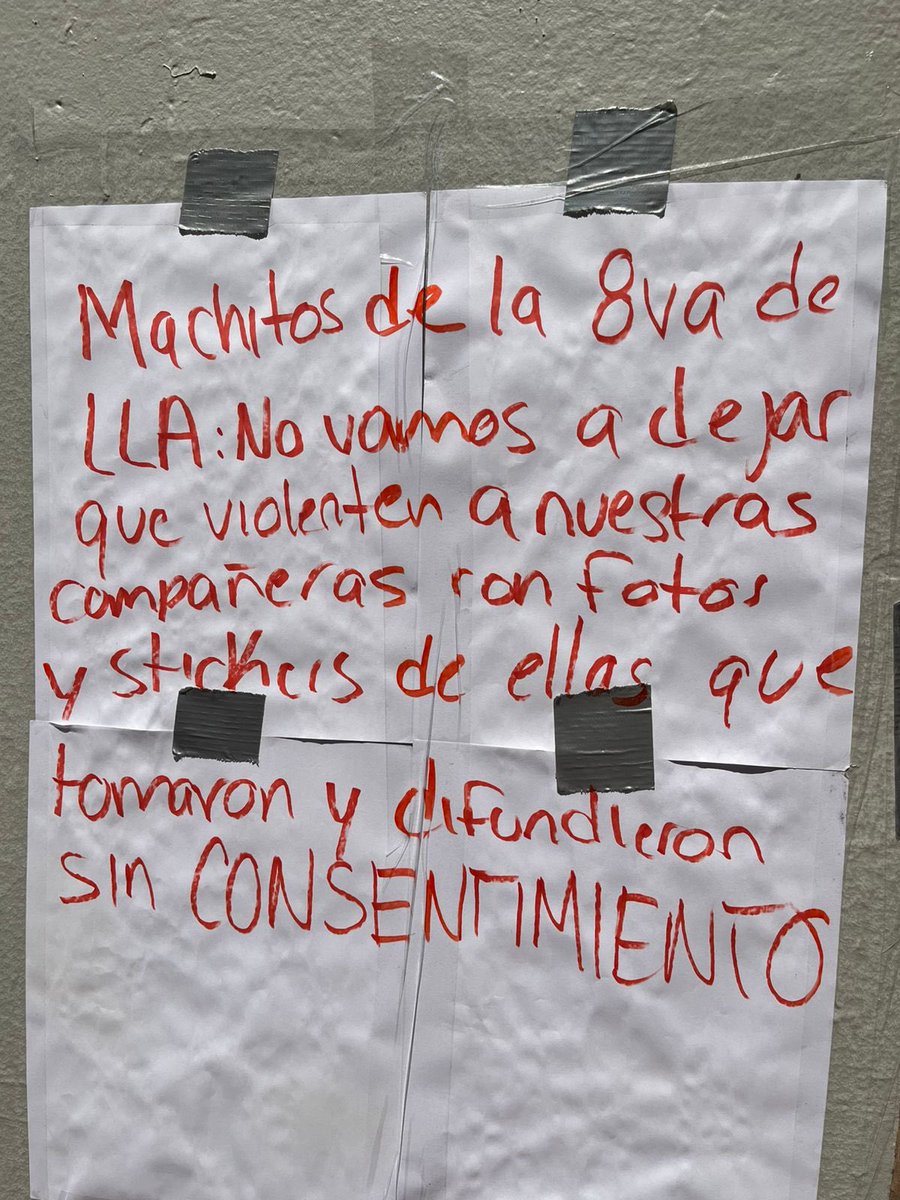 Machitos de la 8va de
LLA: No vamos a dejar
que violenten a nuestras
compañeras con fotos
y stickers de ellas que
tomaron y difundieron
sin CONSENTIMIENTO